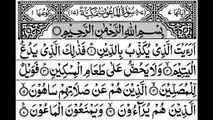 سُوْرَةُ الْمَاعُوْنِ مَكِّيَّةٌ
بِسْمِ اللّٰهِ الرَّحْمٰنِ الرَّحِيْمِ
اَرَءَيْتَ الَّذِيْ يُكَذِّبُ بِالدِّيْنِ ۝ فَذٰلِكَ الَّذِيْ يَدُعُّ
الْيَتِيْمَ ۝ وَلَا يَحُضُّ عَلٰى طَعَامِ الْمِسْكِيْنِ ۝ فَوَيْلٌ
لِّلْمُصَلِّيْنَ ۝ الَّذِيْنَ هُمْ عَنْ صَلَاتِهِمْ سَاهُوْنَ ۝
الَّذِيْنَ هُمْ يُرَآءُوْنَ ۝ وَيَمْنَعُوْنَ الْمَاعُوْنَ ۝